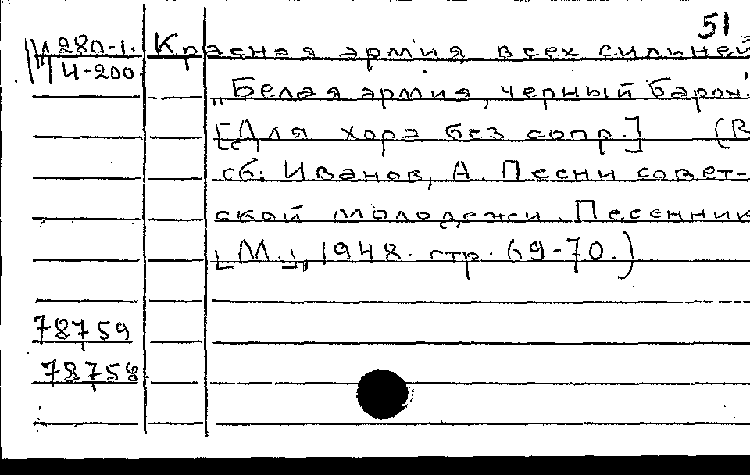 51
И 280-1. Красная армия всех сильней
Ч-200
„Белая армия, черный барон"
[Для хора без сопр.] (В
сб: Иванов, А. Песни совет-
ской молодежи. Песенник
[М.], 1948. стр. 69-70.)
78759
78758